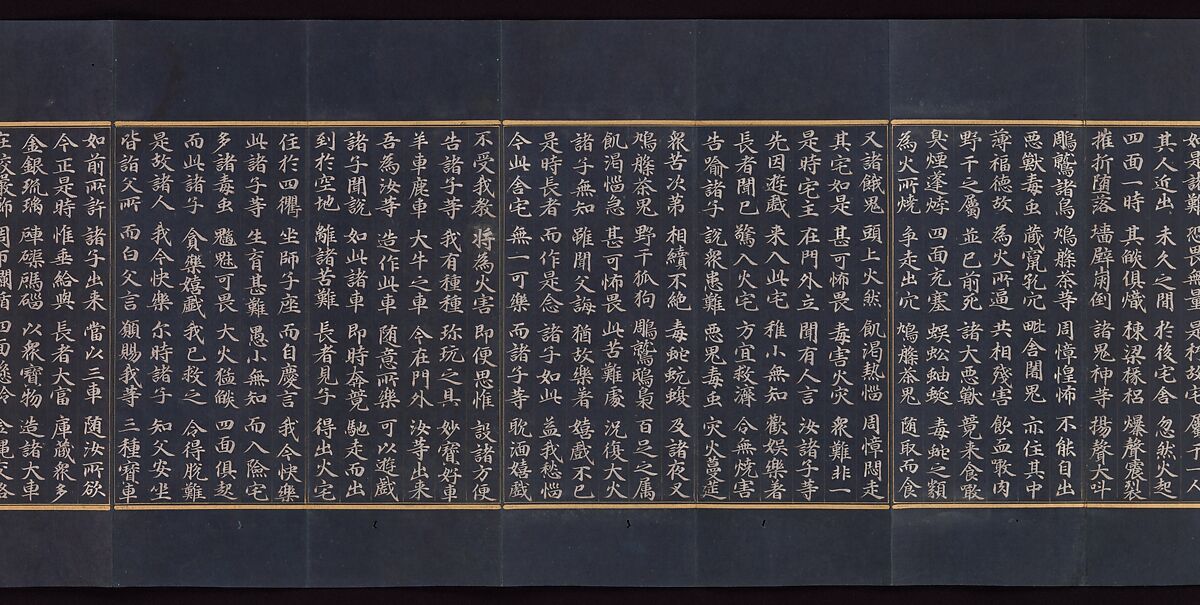 如是諸難 恐畏無量 是朽故宅 屬于一人
其人近出 未久之間 於後宅舍 忽然火起
四面一時 其㷔俱熾 棟梁椽梠 爆聲震裂
摧折墮落 墻壁崩倒 諸鬼神等 揚聲大叫
鵰鷲諸鳥 鳩槃荼等 周慞惶怖 不能自出
惡獸毒虫 藏竄孔穴 毗舍闍鬼 亦住其中
薄福德故 為火所逼 共相殘害 飲血噉肉
野干之屬 並已前死 諸大惡獸 競来食噉
臭煙蓬㶿 四面充塞 蜈蚣蚰蜒 毒蛇之類
為火所燒 爭走出穴 鳩槃荼鬼 随取而食
又諸餓鬼 頭上火然 飢渴熱惱 周慞悶走
其宅如是 甚可怖畏 毒害火災 衆難非一
是時宅主 在門外立 聞有人言 汝諸子等
先因遊戲 来入此宅 稚小無知 歡娛樂著
長者聞已 驚入火宅 方宜救濟 令無燒害
告喻諸子 說衆患難 惡鬼毒虫 災火蔓莚
衆苦次第 相續不絕 毒蛇蚖蝮 及諸夜叉
鳩槃荼鬼 野干狐狗 鵰鷲鵄梟 百足之属
飢渴惱急 甚可怖畏 此苦難處 況復大火
諸子無知 雖聞父誨 猶故樂著 嬉戲不已
是時長者 而作是念 諸子如此 益我愁惱
今此舍宅 無一可樂 而諸子等 耽湎嬉戲
不受我教 將為火害 即便思惟 設諸方便
告諸子等 我有種種 珎玩之具 妙寶好車
羊車鹿車 大牛之車 今在門外 汝等出来
吾為汝等 造作此車 随意所樂 可以遊戲
諸子聞說 如此諸車 即時奔競 馳走而出
到於空地 離諸苦難 長者見子 得出火宅
住於四衢 坐師子座 而自慶言 我今快樂
此諸子等 生育甚難 愚小無知 而入險宅
多諸毒虫 魑魅可畏 大火猛㷔 四面俱起
而此諸子 貪樂嬉戲 我已救之 令得脫難
是故諸人 我今快樂 尔時諸子 知父安坐
皆詣父所 而白父言 願賜我等 三種寶車
如前所許 諸子出来 當以三車 随汝所欲
今正是時 惟垂給與 長者大富 庫藏衆多
金銀琉璃 硨磲碼碯 以衆寶物 造諸大車